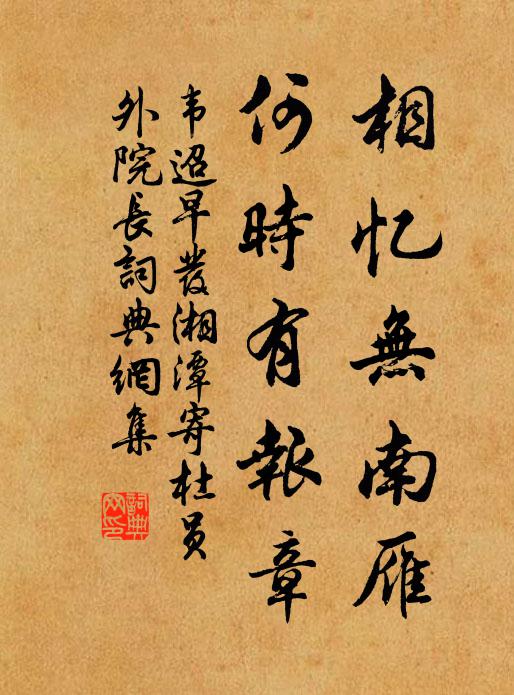 相忆無南雁
何時有報章
韦迢早發湘潭寄杜员
外院長詞典網集
詞典
网印